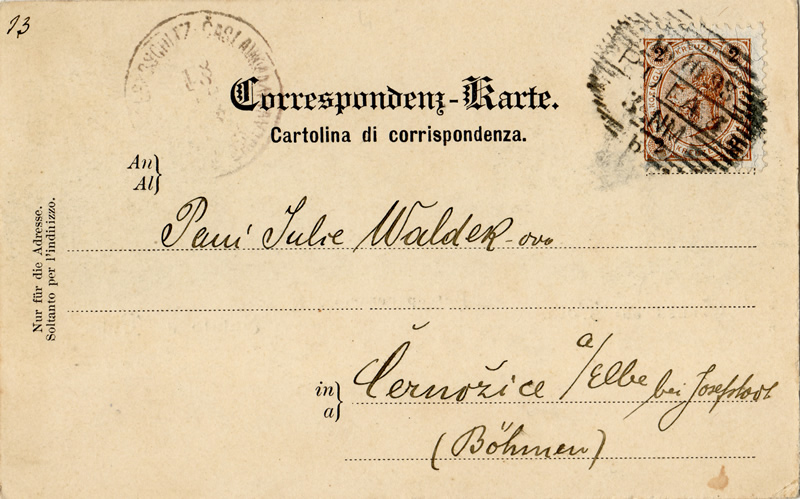 13
Correspondenz-Karte.
Cartolina di corrispondenza.
An
Al
Paní Julie Waldek-ova
Nur für die Adresse.
Soltanto per l'indirizzo.
in
a
Černožice a/Elbe bei Josefstadt
(Böhmen)
2 KREUZER 2